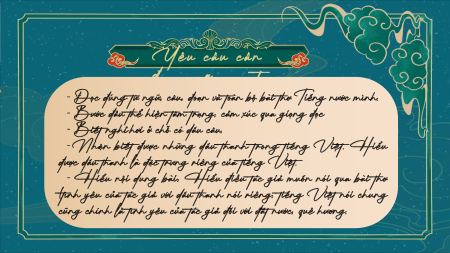 Yêu cầu cần
- Đọc đúng từ ngữ, câu, đoạn và toàn bộ bài thơ Tiếng nước mình.
- Bước đầu thể hiện tâm trạng, cảm xúc qua giọng đọc
- Biết nghỉ hơi ở chỗ có dấu câu.
- Nhận biết được những dấu thanh trong tiếng Việt. Hiểu
được dấu thanh là đặc trưng riêng của tiếng Việt.
- Hiểu nội dung bài: Hiểu điều tác giả muốn nói qua bài thơ:
tình yêu của tác giả với dấu thanh nói riêng, tiếng Việt nói chung
cũng chính là tình yêu của tác giả đối với đất nước, quê hương.